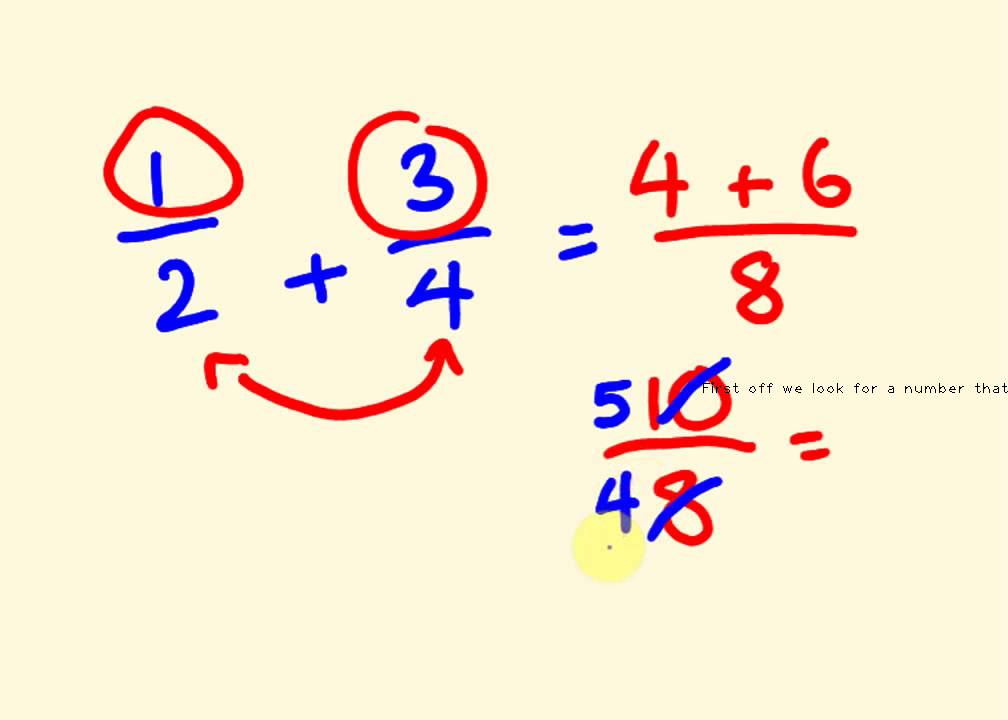 1/2 + 3/4 = 4 + 6/8
5 10/4 8 =
First off we look for a number that